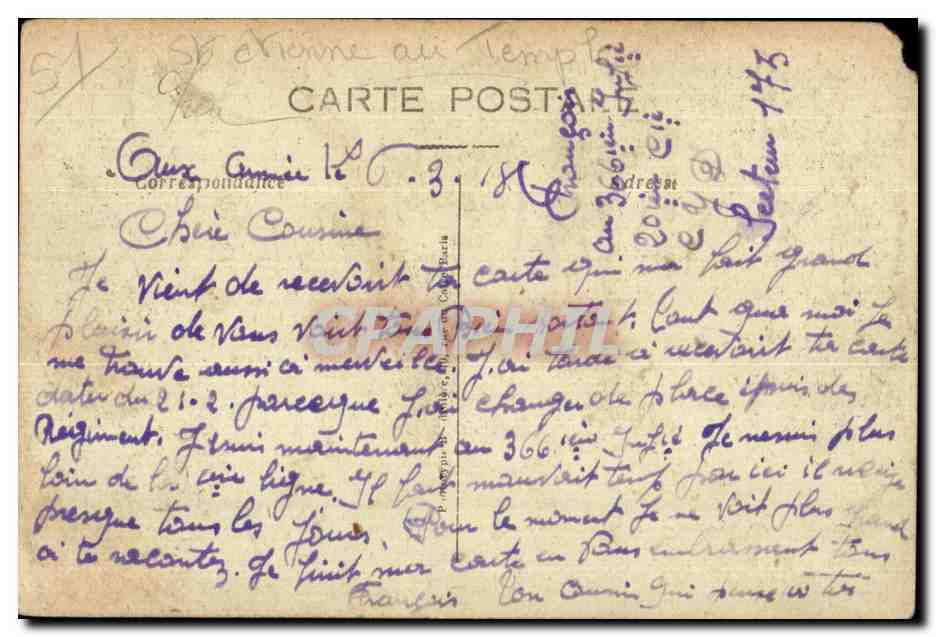 51 St Etienne au Temple
CARTE POSTALE
Aux Armée le 6.3.18
Correspondance
Adresse
François
au 366 ième Inftie
20 ième Cie
C I D
Secteur 175
Chère Cousine
Je vient de recevoir ta carte qui ma fait grand
plaisir de vous voir tous bien portant. Tant que moi Je
me trouve aussi à merveille. J'ai tardé à recevoir ta carte
dater du 21.2. parceque J'ai changer de place ipuis de
Régiment. Je suis maintenant au 366 ième Inftie Je ne suis plus
loin de la ière ligne. Il fait mauvait temp par ici il neige
presque tous les jours. Pour le moment Je ne voit plus grand
à te racontez. Je finit ma carte en vous embrassent tous
François Ton cousin qui pense à toi
CPAPHIL